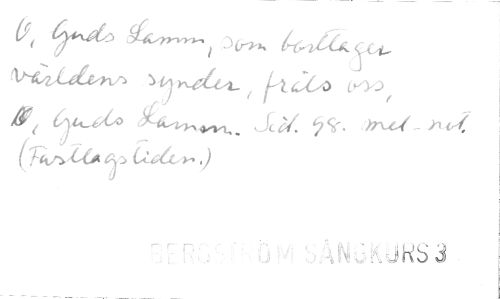 O, Guds Lamm, som borttager
världens synder, fräls oss,
O, Guds Lamm. Sid. 98. mel-not.
(Fastlagstiden.)
BERGSTRÖM SÅNGKURS 3